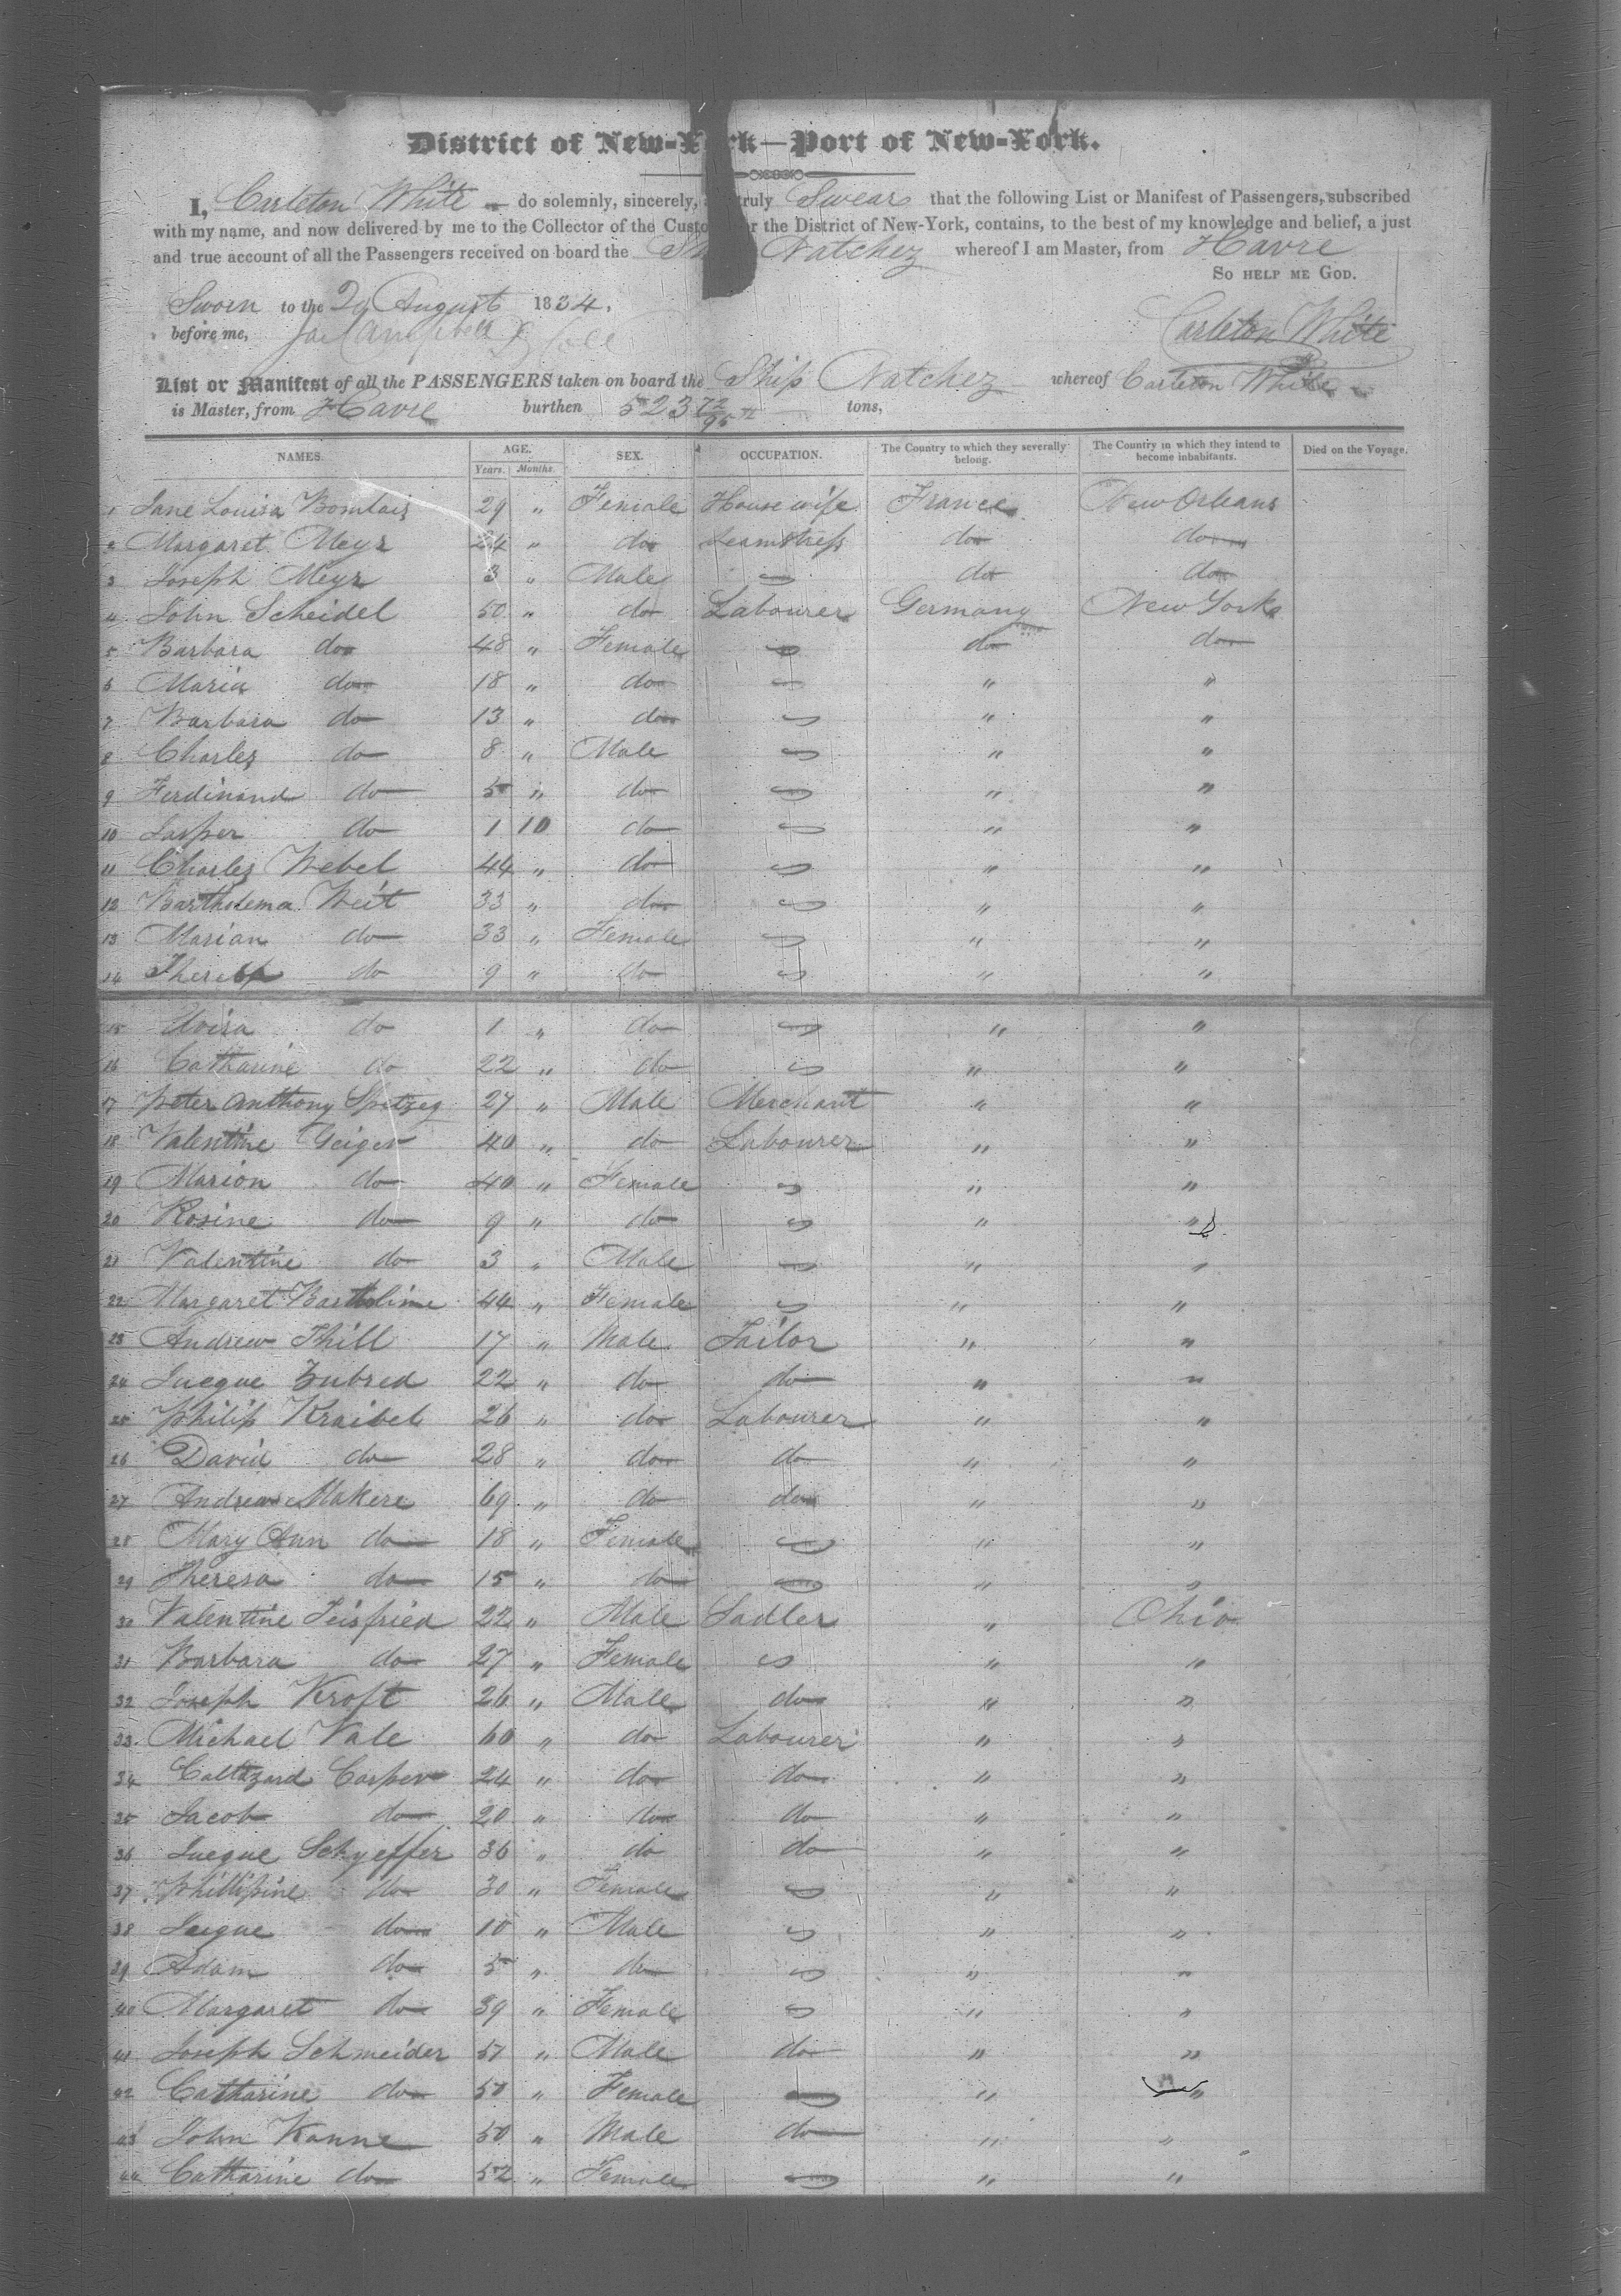 District of New-York—Port of New-York.
I, Carleton White do solemnly, sincerely, truly Swear that the following List or Manifest of Passengers, subscribed
with my name, and now delivered by me to the Collector of the Custo r the District of New-York, contains, to the best of my knowledge and belief, a just
and true account of all the Passengers received on board the Natchez whereof I am Master, from Havre
So help me God.
Sworn to the August 1834.
before me, Campbell
Carleton White
List or Manifest of all the PASSENGERS taken on board the Ship Natchez whereof Carleton White
is Master, from Havre burthen 523 72/95 tons,
NAMES. AGE. Years. Months. SEX. OCCUPATION. The Country to which they severally belong. The Country in which they intend to become inhabitants. Died on the Voyage.
1 Jane Louisa 29 " Female House wife France New Orleans
2 Margaret Meyr 24 " do Seamstress do do
3 Joseph Meyr 3 " Male do do
4 John Scheidel 50 " do Labourer Germany New York
5 Barbara do 48 " Female do do
6 Maria do 18 " do " "
7 Barbara do 13 " do " "
8 Charles do 8 " Male " "
9 Ferdinand do 5 " do " "
10 Jasper do 1 10 do " "
11 Charles Webel 44 " do " "
12 Bartholema Weit 33 " do " "
13 Marian do 33 " Female " "
14 do 9 " do " "
15 do 1 " do " "
16 Catharine do 22 " do " "
17 Peter Anthony 27 " Male Merchant " "
18 Valentine Geiger 40 " do Labourer " "
19 Marion do 40 " Female " "
20 Rosine do 9 " do " "
21 Valentine do 3 " Male " "
22 Margaret Bartholime 44 " Female " "
23 Andrew Thill 17 " Male Tailor " "
24 Jueque Zubred 22 " do do " "
25 Philip Kraibel 26 " do Labourer " "
26 David do 28 " do do " "
27 Andrew Makere 69 " do do " "
28 Mary Ann do 18 " Female " "
29 Theresa do 15 " do " "
30 Valentine Teisfried 22 " Male Sadler " Ohio
31 Barbara do 27 " Female " "
32 Joseph Kroft 26 " Male do " "
33 Michael Vale 60 " do Labourer " "
34 Caltazard Casper 24 " do do " "
35 Jacob do 20 " do do " "
36 Jueque Schyeffer 36 " do do " "
37 Phillipine do 30 " Female " "
38 Jueque do 10 " Male " "
39 Adam do 5 " do " "
40 Margaret do 39 " Female " "
41 Joseph Schmeider 51 " Male do " "
42 Catharine do 50 " Female " "
43 John Kanne 50 " Male do " "
44 Catharine do 52 " Female " "